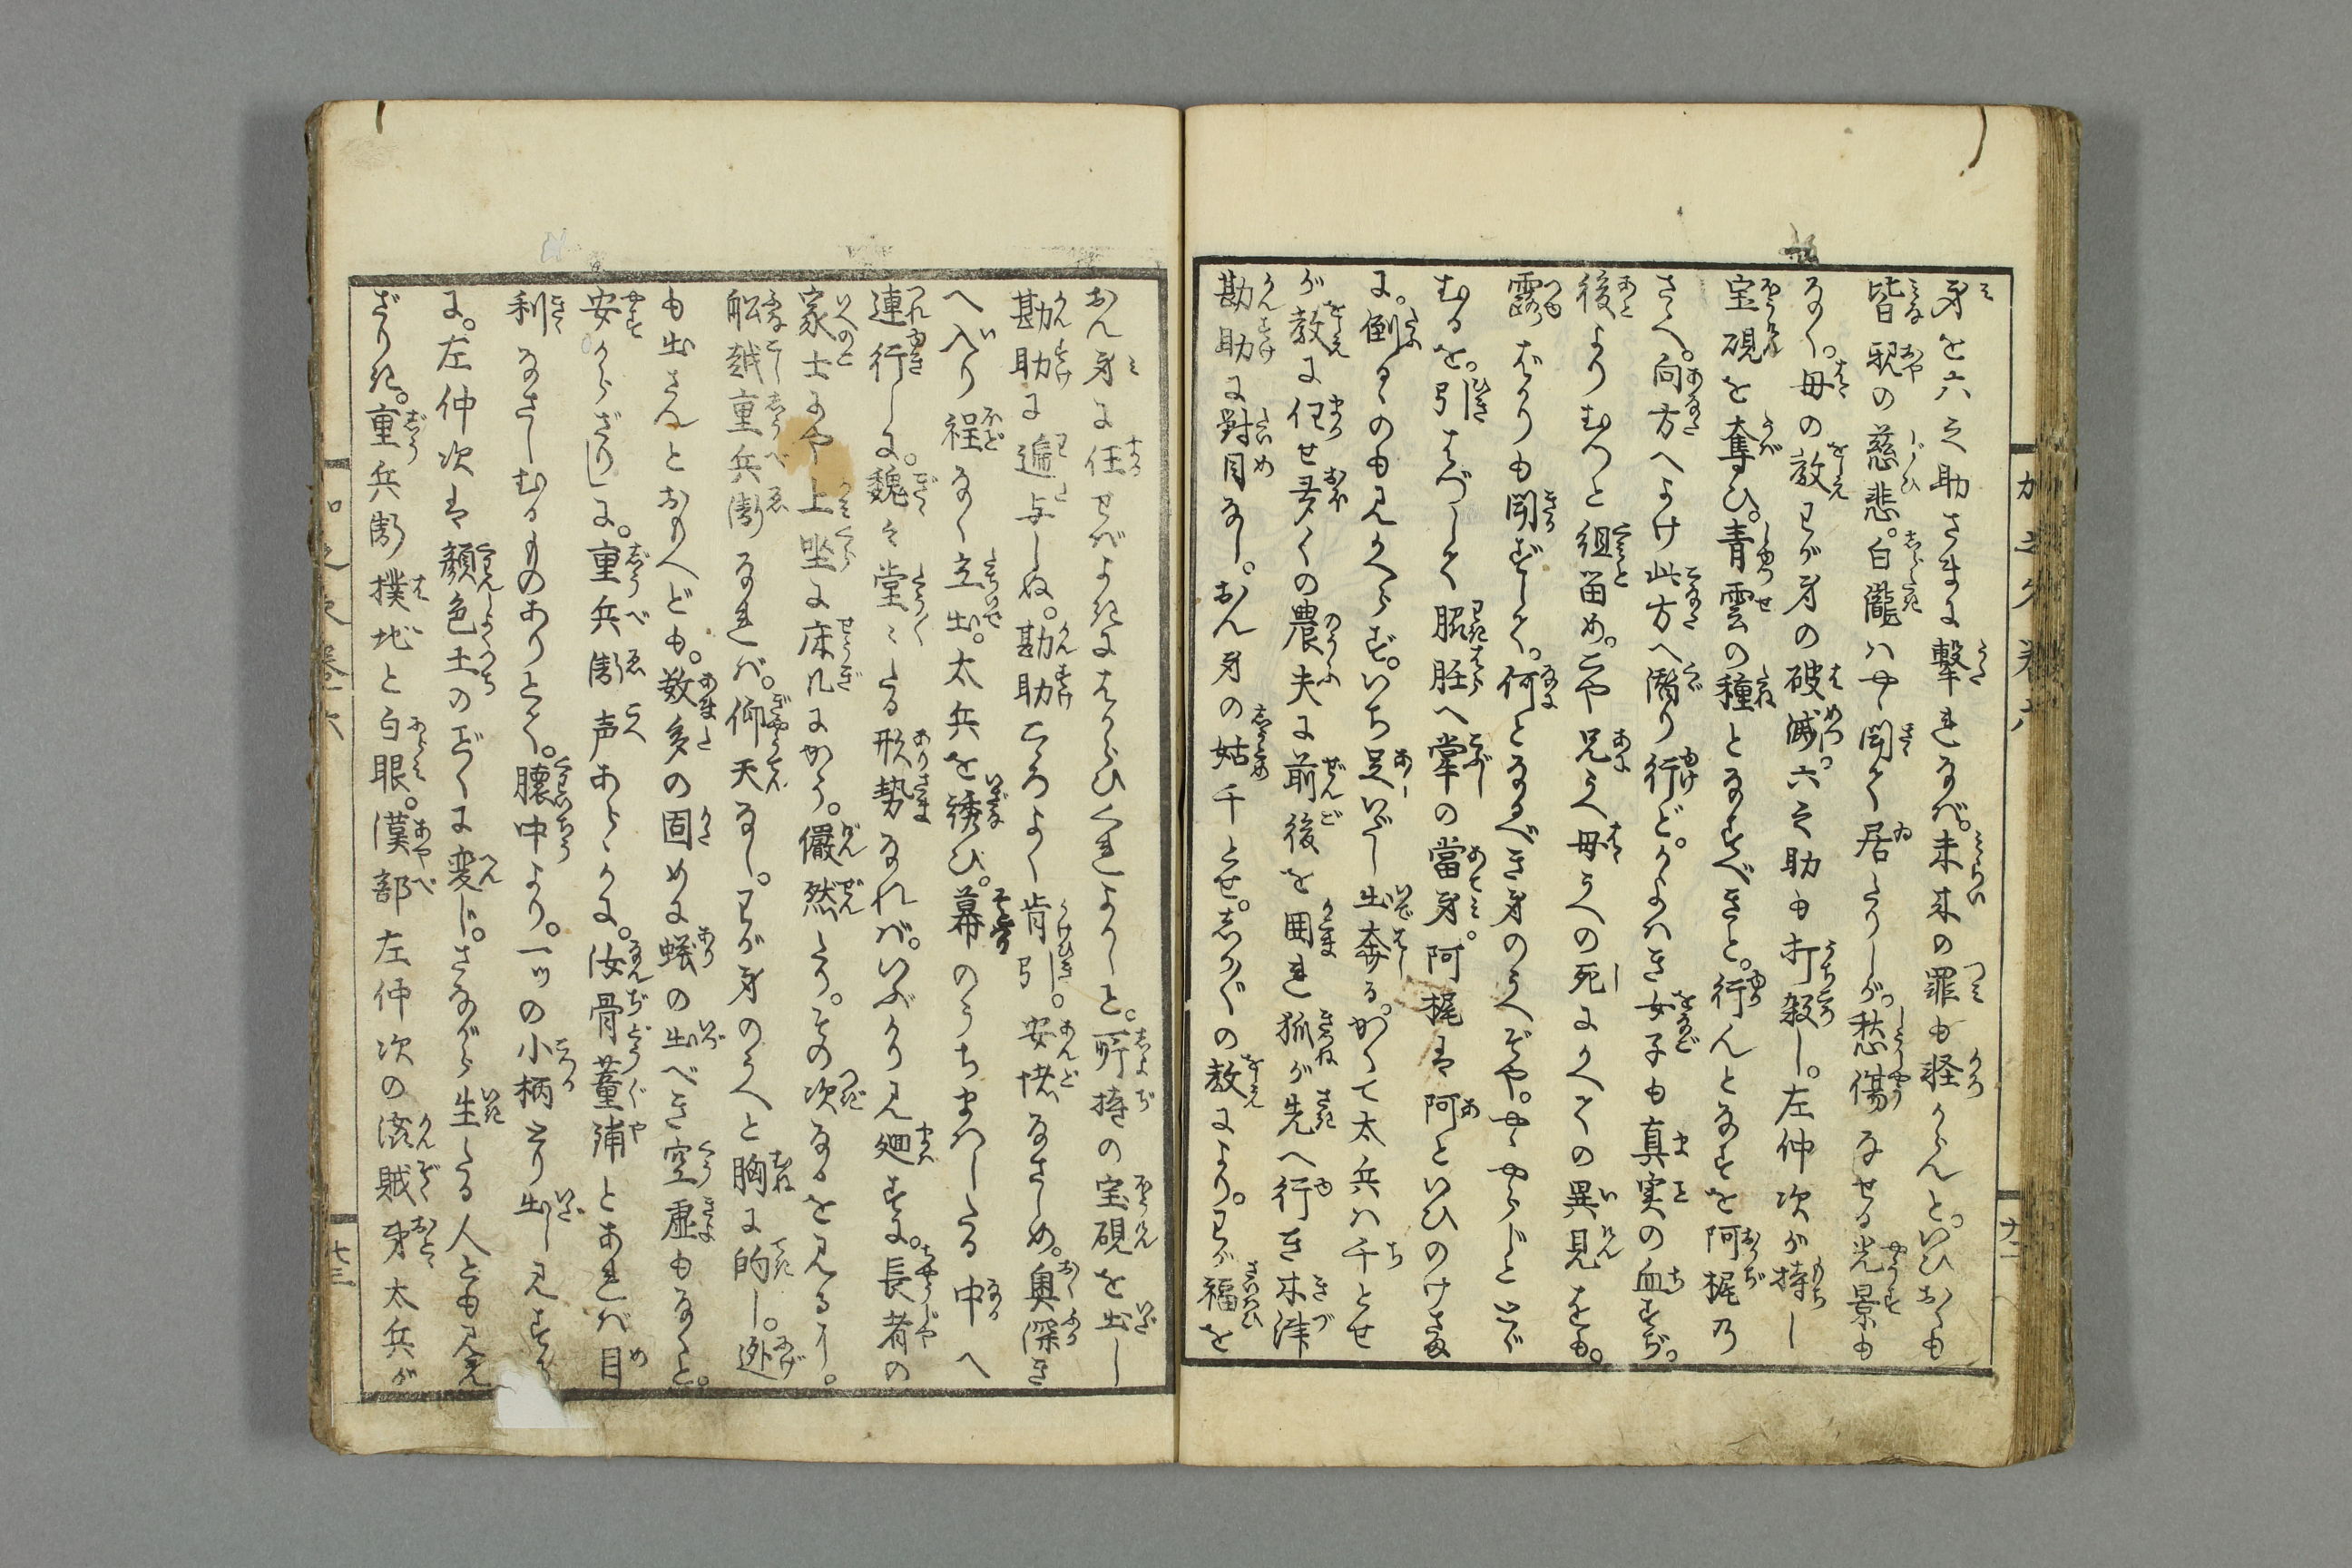 身を六之助さまに撃れなば。未来の罪も軽からんと。いひおくも
皆親の慈悲。白瀧はやゝ聞て居たりしが。愁傷なせる光景も
なく。母の教わが身の破滅。六之助も打殺し。左仲次が持し
宝硯を奪ひ。青雲の種となすべきと。行んとなすを阿梶の
さゝへ。向方へよけ此方へ潜り行ど。かよはき女子も真実の血すぢ。
後よりむづと組留め。こや兄うへ母うへの死にかへての異見をも。
露ばかりも聞ずして。何となるべき身のうへぞや。やゝやらじとすが
むるを。引はづして脇肚へ拳の當身。阿梶は阿といひのけさま
に。倒るゝのも見かへらず。いち足いだし出奔る。かくて太兵ハ千とせ
が教に任せ多くの農夫に前後を囲れ狐が先へ行き木津
勘助に對目なし。おん身の姑千とせ。しか〴〵の教により。わが福を
おん身に任せばよきにはからひくれよかしと。所持の宝硯を出し
勘助に遍与しぬ。勘助こゝろよく肯引し。安堵なさしめ。奥深き
へ入り程なく立出。太兵を誘ひ。幕のうちまはしたる中へ
連行しに。魏々堂々たる形勢なれば。いぶかり見廻すに。長者の
家士にや上坐に床几にかゝり。儼然たり。その次なるを見るに。
舩越重兵衛なれば。仰天なし。わが身のうへと胸に的し。逃
も出さんとおもへども。数多の固めに蟻の出べき空虚もなくと。
安からざりしに。重兵衛声あらゝかに。汝骨董舗とあれば目
利なさしむるものありとて。懐中より。一ツの小柄とり出し見すれ
に。左仲次は顔色土のごとくに変じ。さながら生たる人とも見え
ざりき。重兵衛撲地と白眼。漢部左仲次の姦賊弟太兵が
巻六
十二
巻六
十三